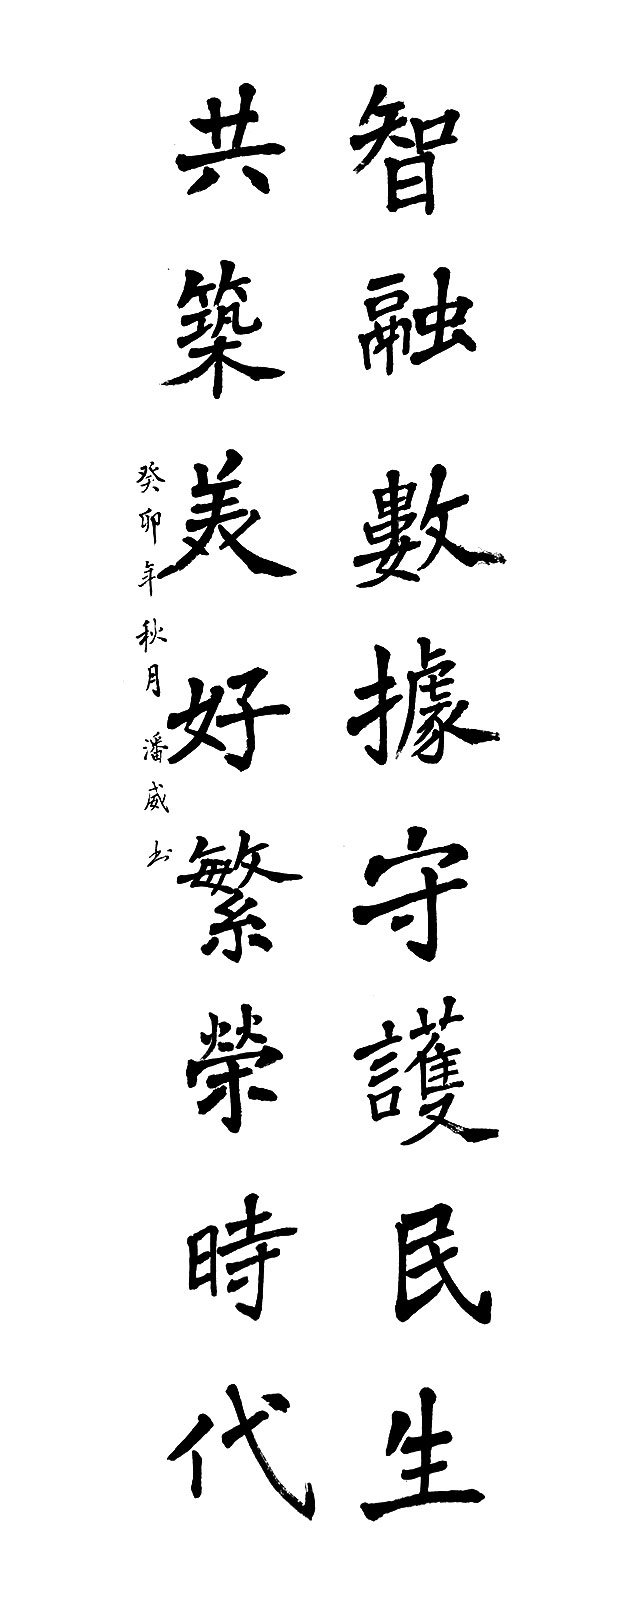 智融數據守護民生
共築美好繁榮時代
癸卯年秋月潘威书